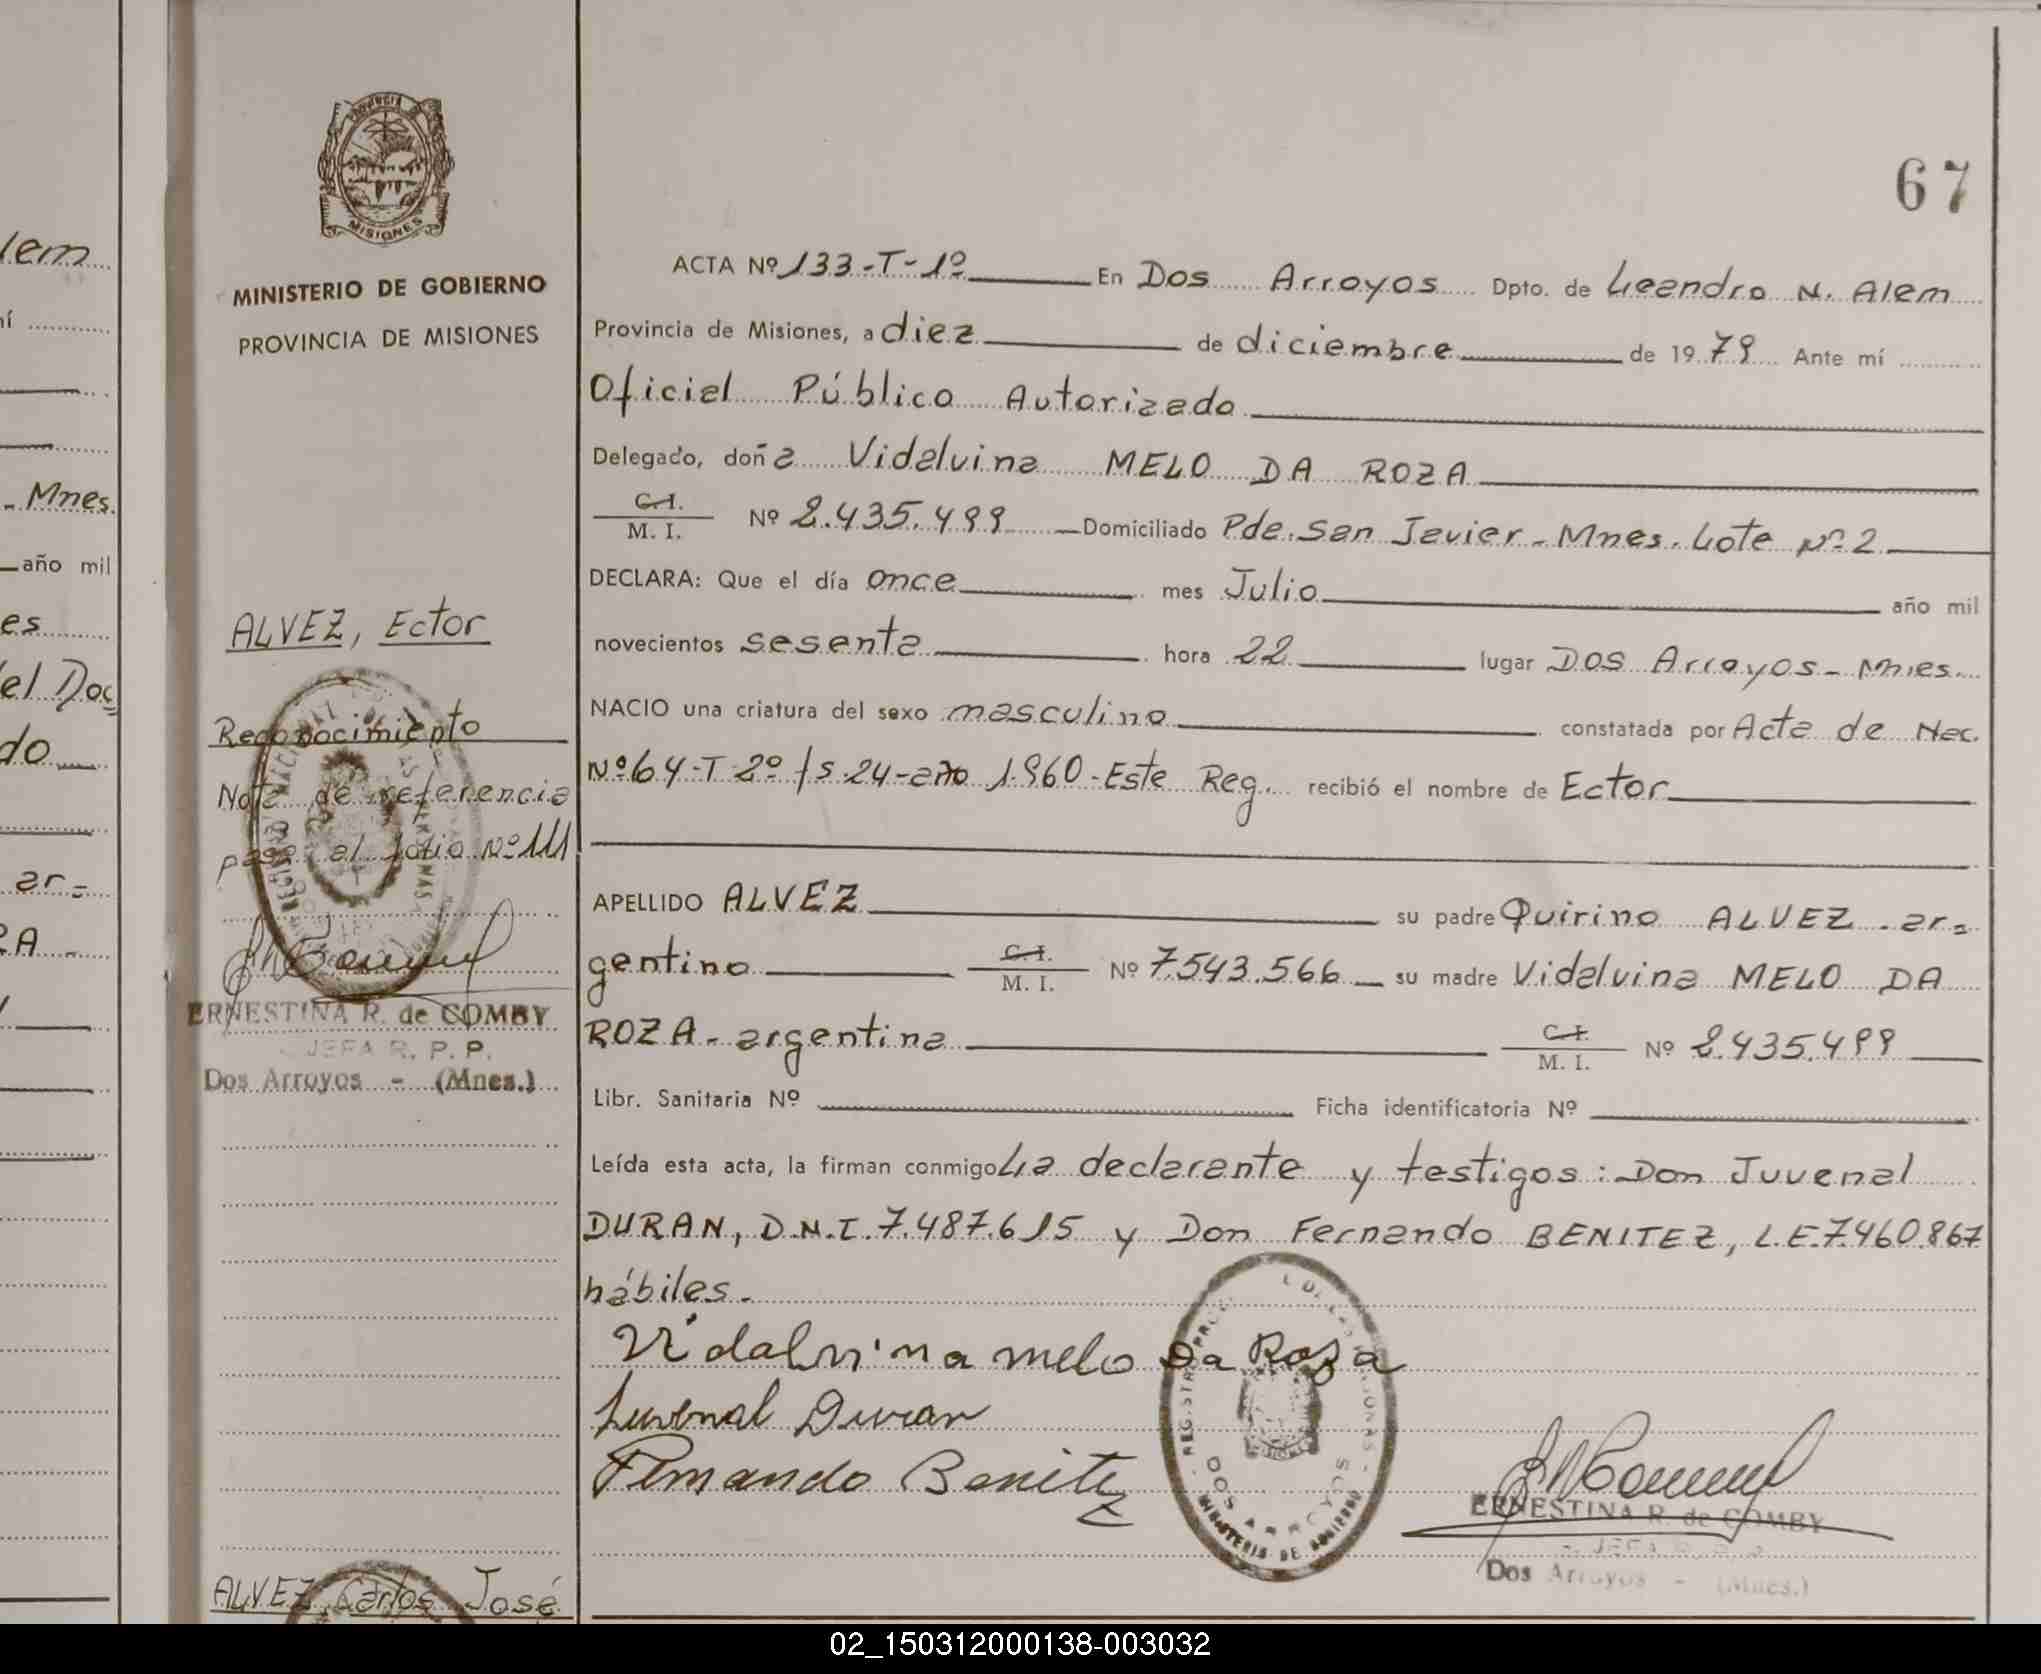 lem
67
MISIONES
MINISTERIO DE GOBIERNO
PROVINCIA DE MISIONES
ALVEZ, Ector
Reconocimiento
Nota de referencia
pasa al folio Nº 111
ERNESTINA R. de COMBY
JEFA R. P. P.
Dos Arroyos - (Mnes.)
ALVEZ Carlos José
ACTA Nº 133-T-1º En Dos Arroyos Dpto. de Leandro N. Alem
Provincia de Misiones, a diez de diciembre de 1979 Ante mí
Oficial Público Autorizado
Delegado, doña Vidalvina MELO DA ROZA
C.I. M. I. Nº 2.435.499 Domiciliado Pde. San Javier - Mnes. Lote Nº 2
DECLARA: Que el día once mes Julio año mil
novecientos sesenta hora 22 lugar Dos Arroyos - Mnes.
NACIO una criatura del sexo masculino constatada por Acta de Nac.
Nº 64-T 2º fs. 24-año 1.960-Este Reg. recibió el nombre de Ector
APELLIDO ALVEZ su padre Quirino ALVEZ - ar=
gentino C.I. M. I. Nº 7.543.566 su madre Vidalvina MELO DA
ROZA - argentina C.I. M. I. Nº 2.435.499
Libr. Sanitaria Nº Ficha identificatoria Nº
Leída esta acta, la firman conmigo La declarante y testigos: Don Juvenal
DURAN, D.N.I. 7.487.615 y Don Fernando BENITEZ, L.E. 7.460.867
hábiles.
Vidalvina melo Da Roza
Juvenal Duran
Fernando Benitez
DOS ARROYOS
MINISTERIO DE GOBIERNO
ERNESTINA R. de COMBY
Dos Arroyos - (Mnes.)
02_150312000138-003032